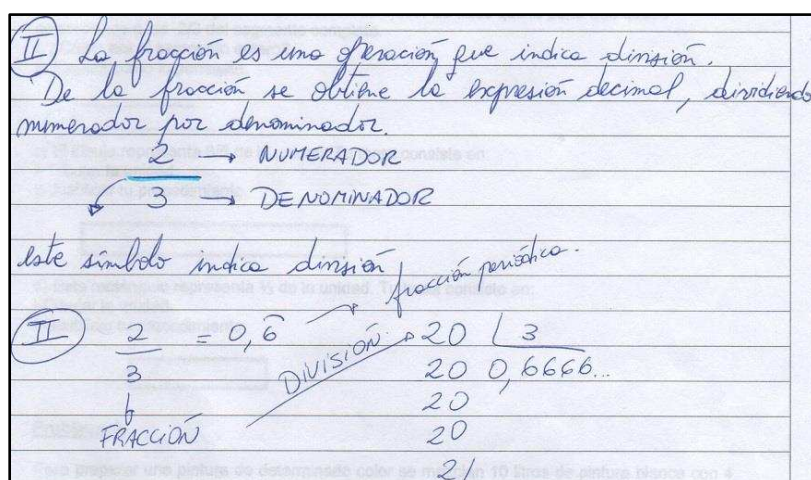 II) La fracción es una operación que indica división.
De la fracción se obtiene la expresión decimal, dividiendo
numerador por denominador.
2 → NUMERADOR
3 → DENOMINADOR
este símbolo indica división
fracción periódica.
II) 2/3 = 0,6̂
FRACCIÓN
DIVISIÓN
20 | 3
20 0,6666...
20
20
2/